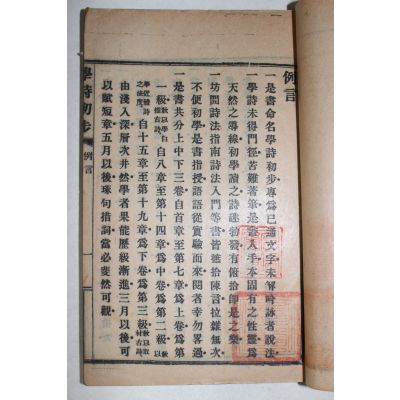 例言
一是書命名學詩初步專爲已通文字未解吟詠者說法
一學詩未得門徑苦難著筆是書入手本固有之性靈爲
天然之導線初學讀之詩趣勃發有俯拾卽是之樂
一坊間詩法指南詩法入門等書皆進拾陳言拉雜無次
不便初學是書指授語語從實驗而來閱者幸勿畧過
一是書共分上中下三卷自首章至第七章爲上卷爲第
一級 自八章至第十四章爲中卷爲第二級
自十五章至第十九章爲下卷爲第三級
由淺入深層次井然學者果能歷級漸進三月以後可
以賦短章五月以後琢句措詞當必斐然可觀
學詩初步 例言 一